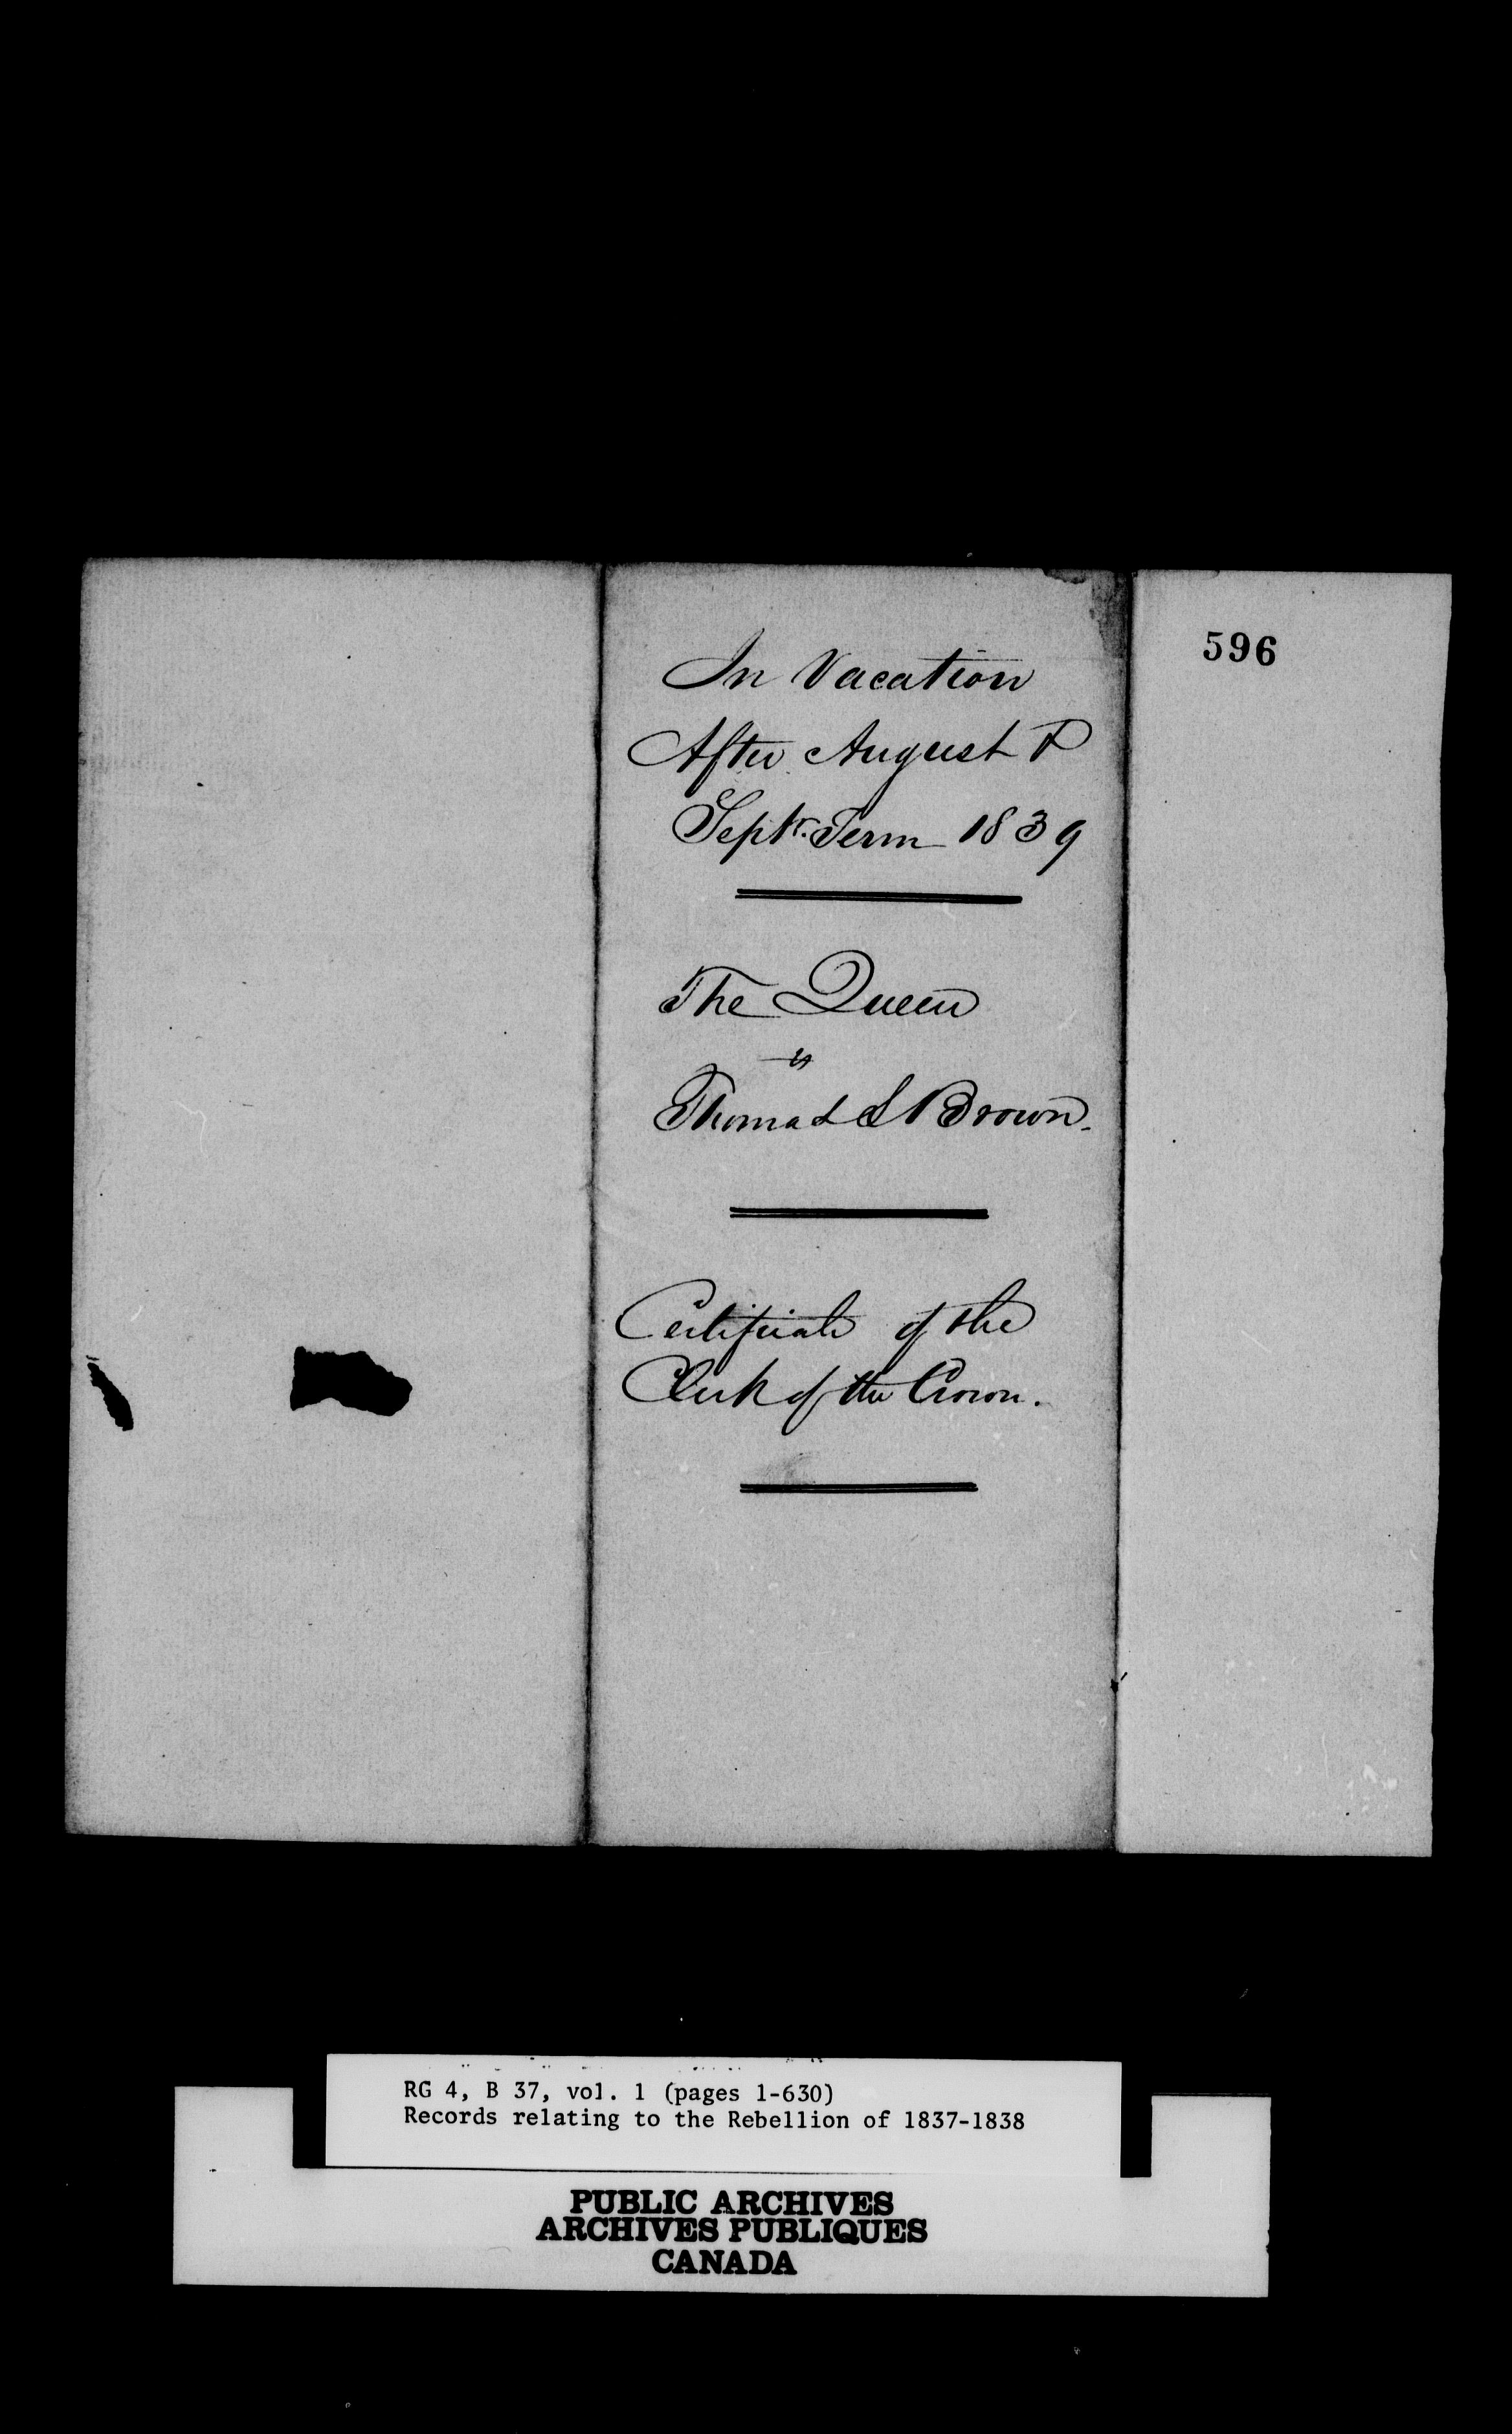 596
In Vacation
After August &
Septr. Term 1839
The Queen
vs
Thomas S Brown.
Certificate of the
Clerk of the Crown.
RG 4, B 37, vol. 1 (pages 1-630)
Records relating to the Rebellion of 1837-1838
PUBLIC ARCHIVES
ARCHIVES PUBLIQUES
CANADA